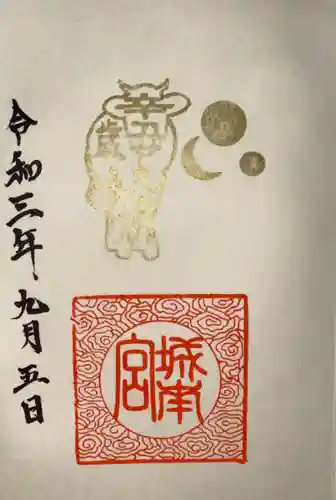 辛丑歳
城南宮
令和三年九月五日